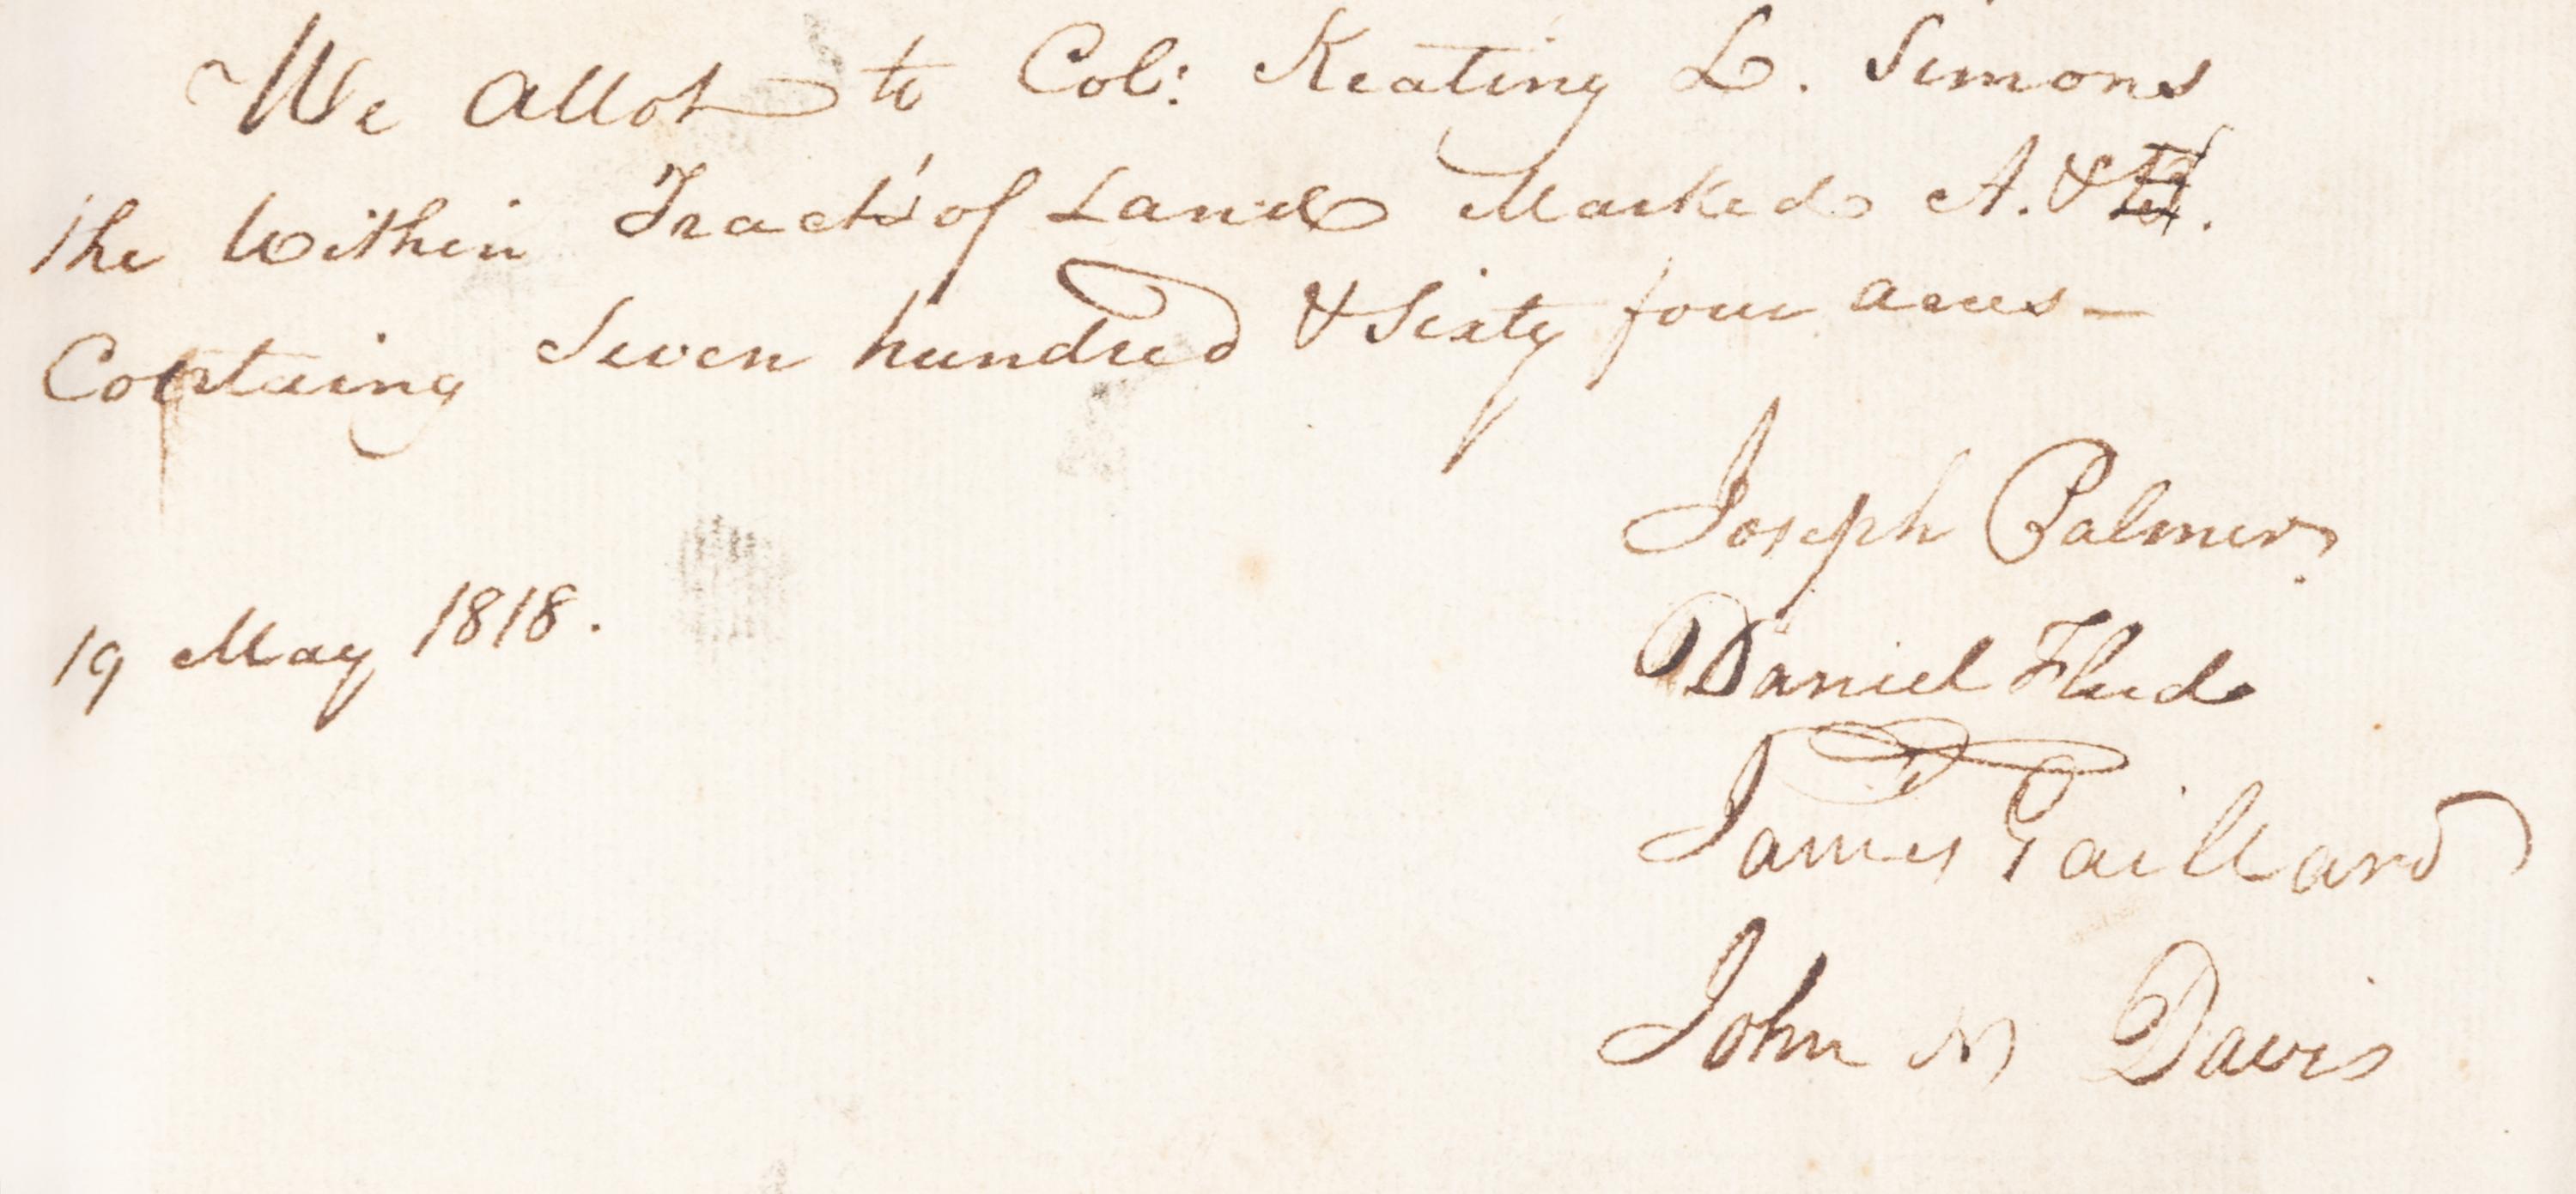 We allot to Col: Keating L. Simons
the Within Tract of Land Marked A. &
Containg Seven hundred & Sixty four acres —
Joseph Palmer
19 May 1818.
Daniel Flud
James Gaillard
John N Davis